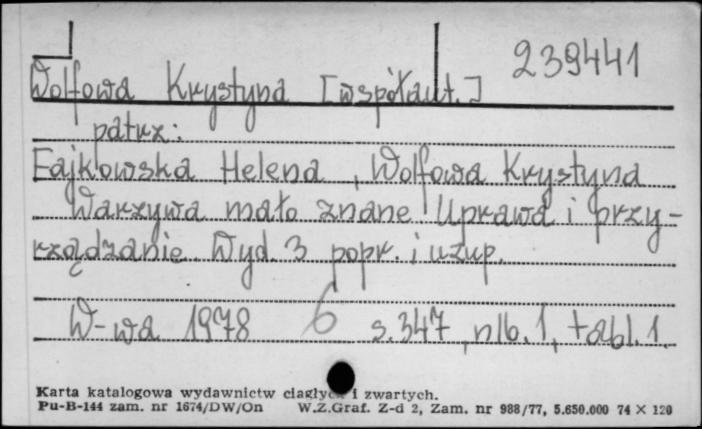 239441
Wolfowa Krystyna [współaut.]
patrz:
Fajkowska Helena, Wolfowa Krystyna
Warzywa mało znane Uprawa i przy-
rządzanie. Wyd. 3 popr. i uzup.
W-wa 1978 6 s.347, nlb.1, tabl.1.
Karta katalogowa wydawnictw ciągłych i zwartych.
Pu-B-144 zam. nr 1674/DW/On W.Z.Graf. Z-d 2, Zam. nr 988/77, 5.650.000 74 X 120